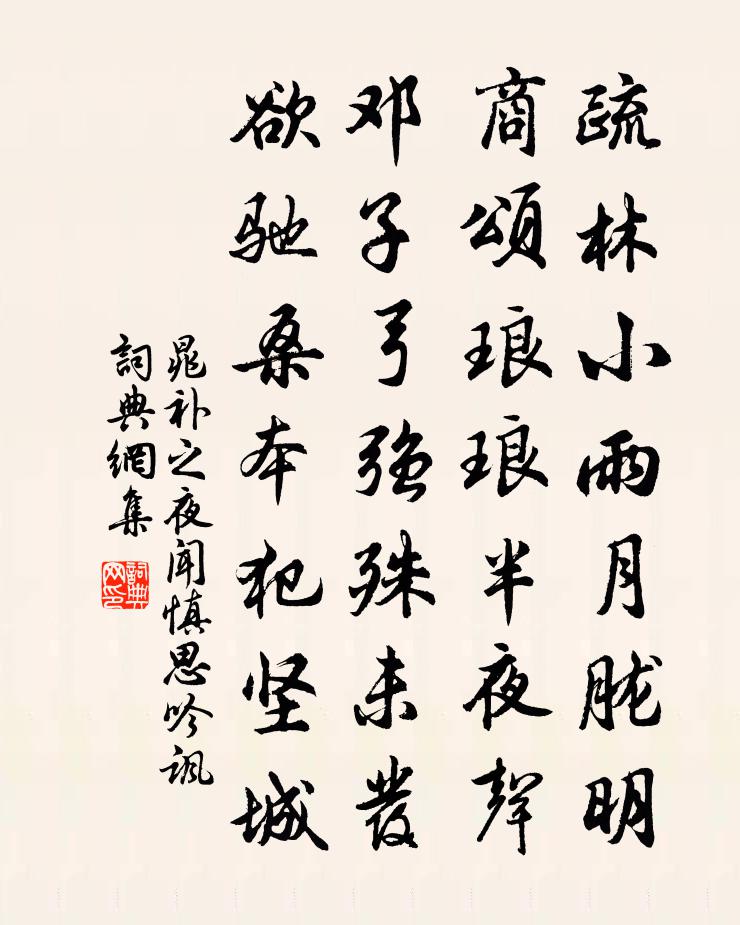 疏林小雨月胧明
商颂琅琅半夜声
邓子弓强殊未发
欲驰桑本犯坚城
晁补之夜闻慎思吟讽
词典网集
词典网印